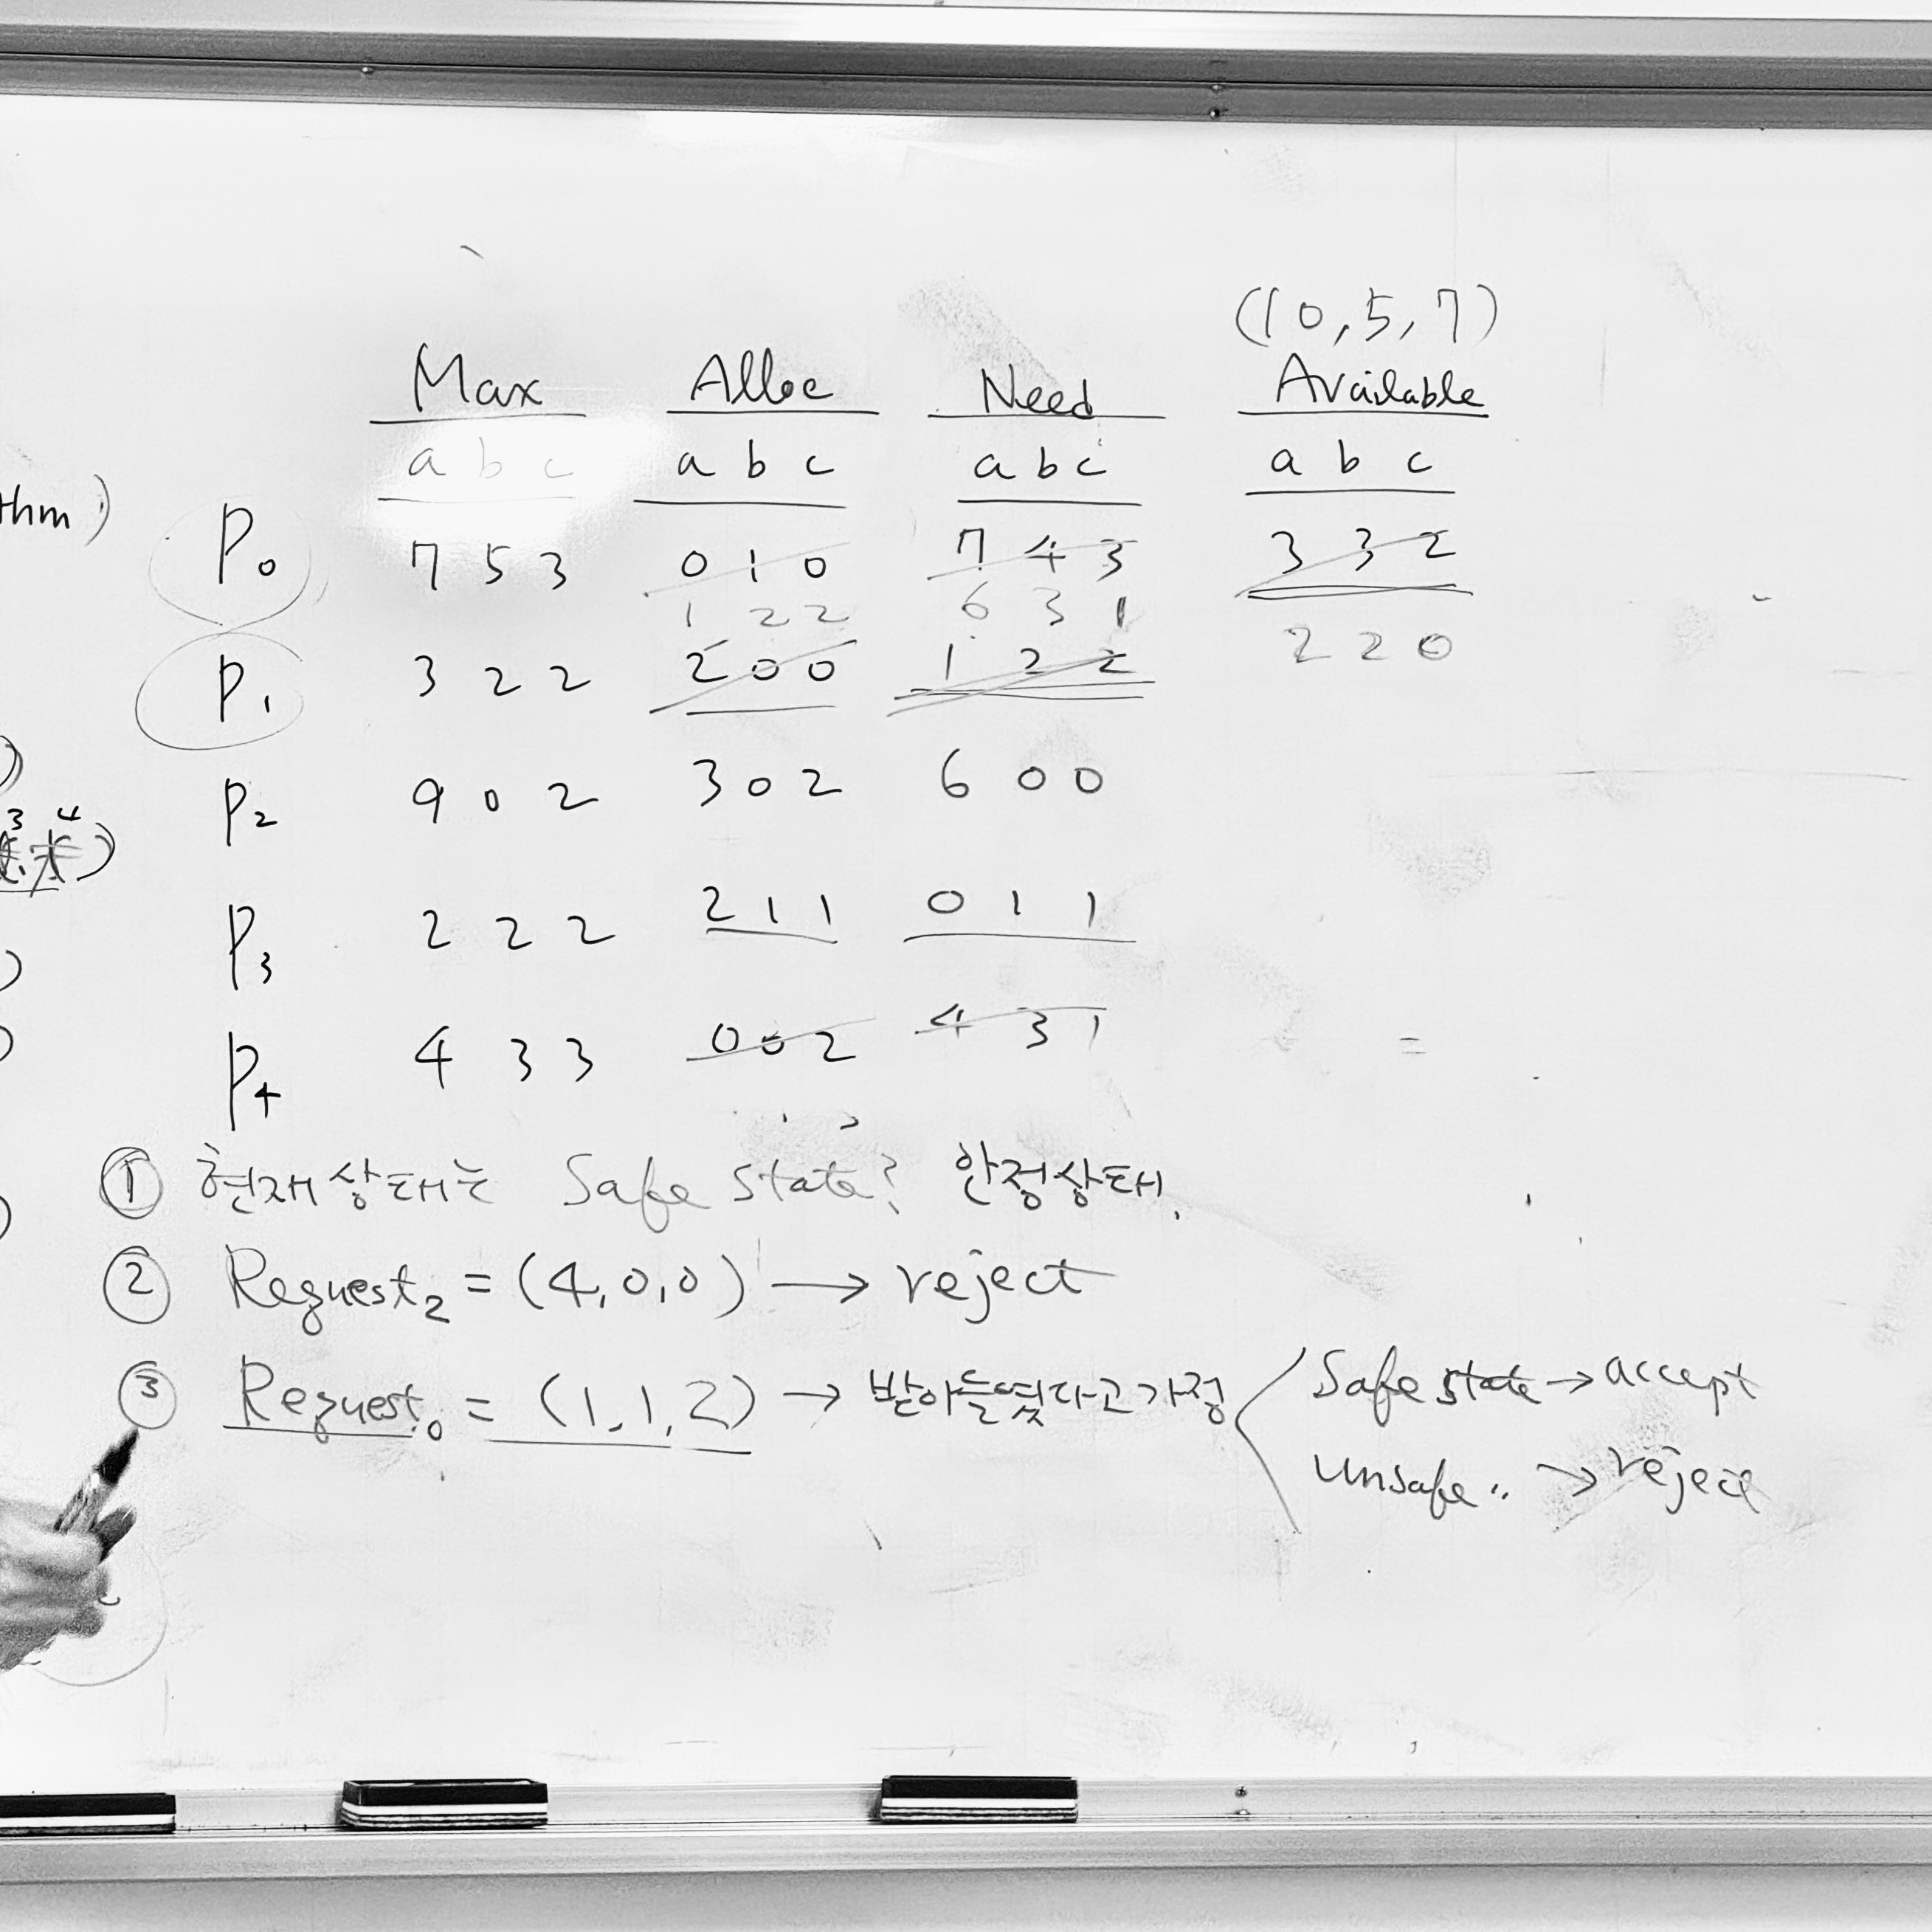 (10,5,7)
Max Alloc Need Available
a b c a b c a b c a b c
thm)
P0 7 5 3 0 1 0 7 4 3 3 3 2
1 2 2 6 3 1
2 2 0
P1 3 2 2 2 0 0 1 2 2
P2 9 0 2 3 0 2 6 0 0
3 4
P3 2 2 2 2 1 1 0 1 1
P4 4 3 3 0 0 2 4 3 1
① 현재상태는 Safe state? 안정상태.
② Request2 = (4,0,0) → reject
③ Request0 = (1,1,2) → 받아들였다고가정
Safe state → accept
unsafe 〃 → reject